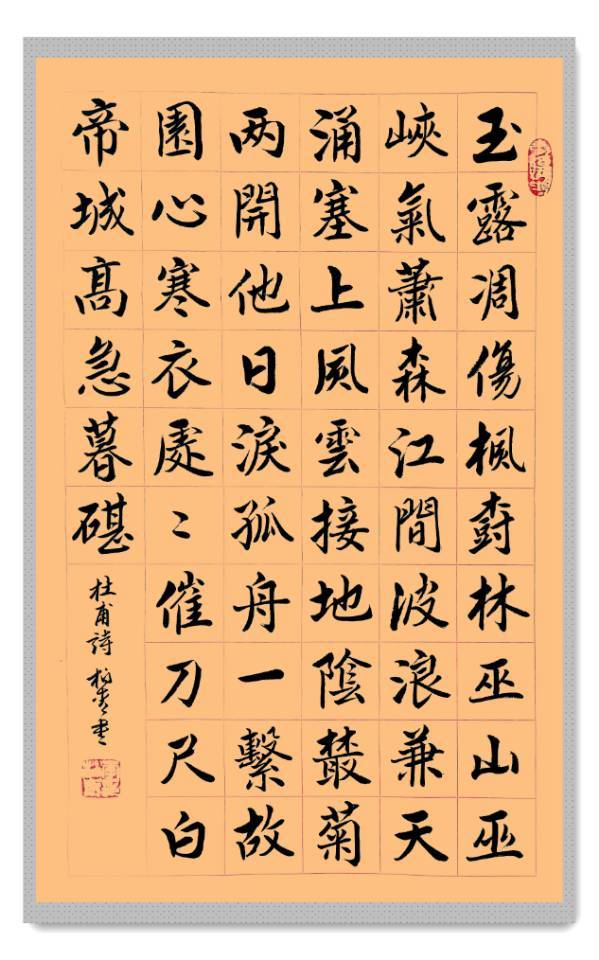 玉露凋傷楓樹林巫山巫
峽氣蕭森江間波浪兼天
涌塞上風雲接地陰叢菊
两開他日淚孤舟一繫故
園心寒衣處〻催刀尺白
帝城髙急暮碪
杜甫詩